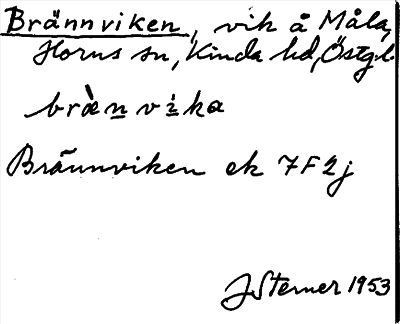 Brännviken, vik å Måla,
Horns sn, Kinda hd, Östg.l.
bræ̀n vi̇ka
Brännviken ek 7F2j
J Sterner 1953